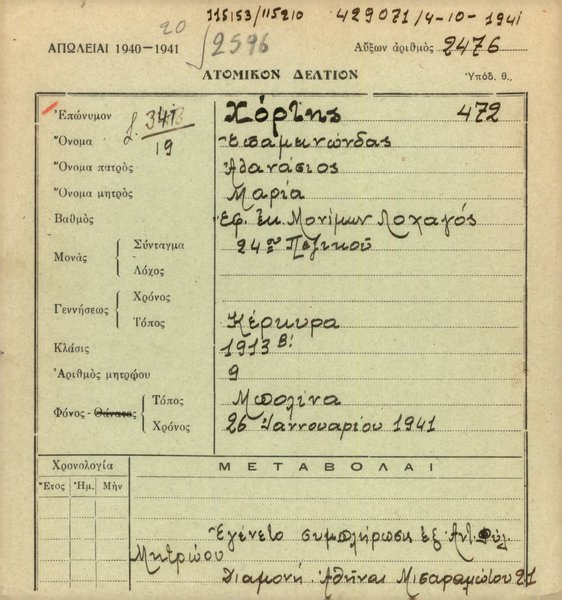 20 115153/115210 429071/4-10-1941
ΑΠΩΛΕΙΑΙ 1940–1941 2596 Αὔξων ἀριθμὸς 2476
ΑΤΟΜΙΚΟΝ ΔΕΛΤΙΟΝ Ὑπόδ. θ.,
Ἐπώνυμον Χόρτης 472
19
Ὄνομα Ἐπαμεινώνδας
Ὄνομα πατρὸς Ἀθανάσιος
Ὄνομα μητρὸς Μαρία
Βαθμὸς Ἐφ. ἐκ Μονίμων Λοχαγός
Μονὰς Σύνταγμα 24ον Πεζικοῦ
Λόχος
Γεννήσεως Χρόνος
Τόπος Κέρκυρα
Κλάσις 1913 Β!
Ἀριθμὸς μητρῴου 9
Φόνος - Θάνατος Τόπος Μπολένα
Χρόνος 26 Ἰαννουαρίου 1941
Χρονολογία ΜΕΤΑΒΟΛΑΙ
Ἔτος Ἡμ. Μὴν
Ἐγένετο συμπλήρωσις ἐξ Ἀντ. Φύλ.
Μητρώου
Διαμονή Ἀθῆναι 21